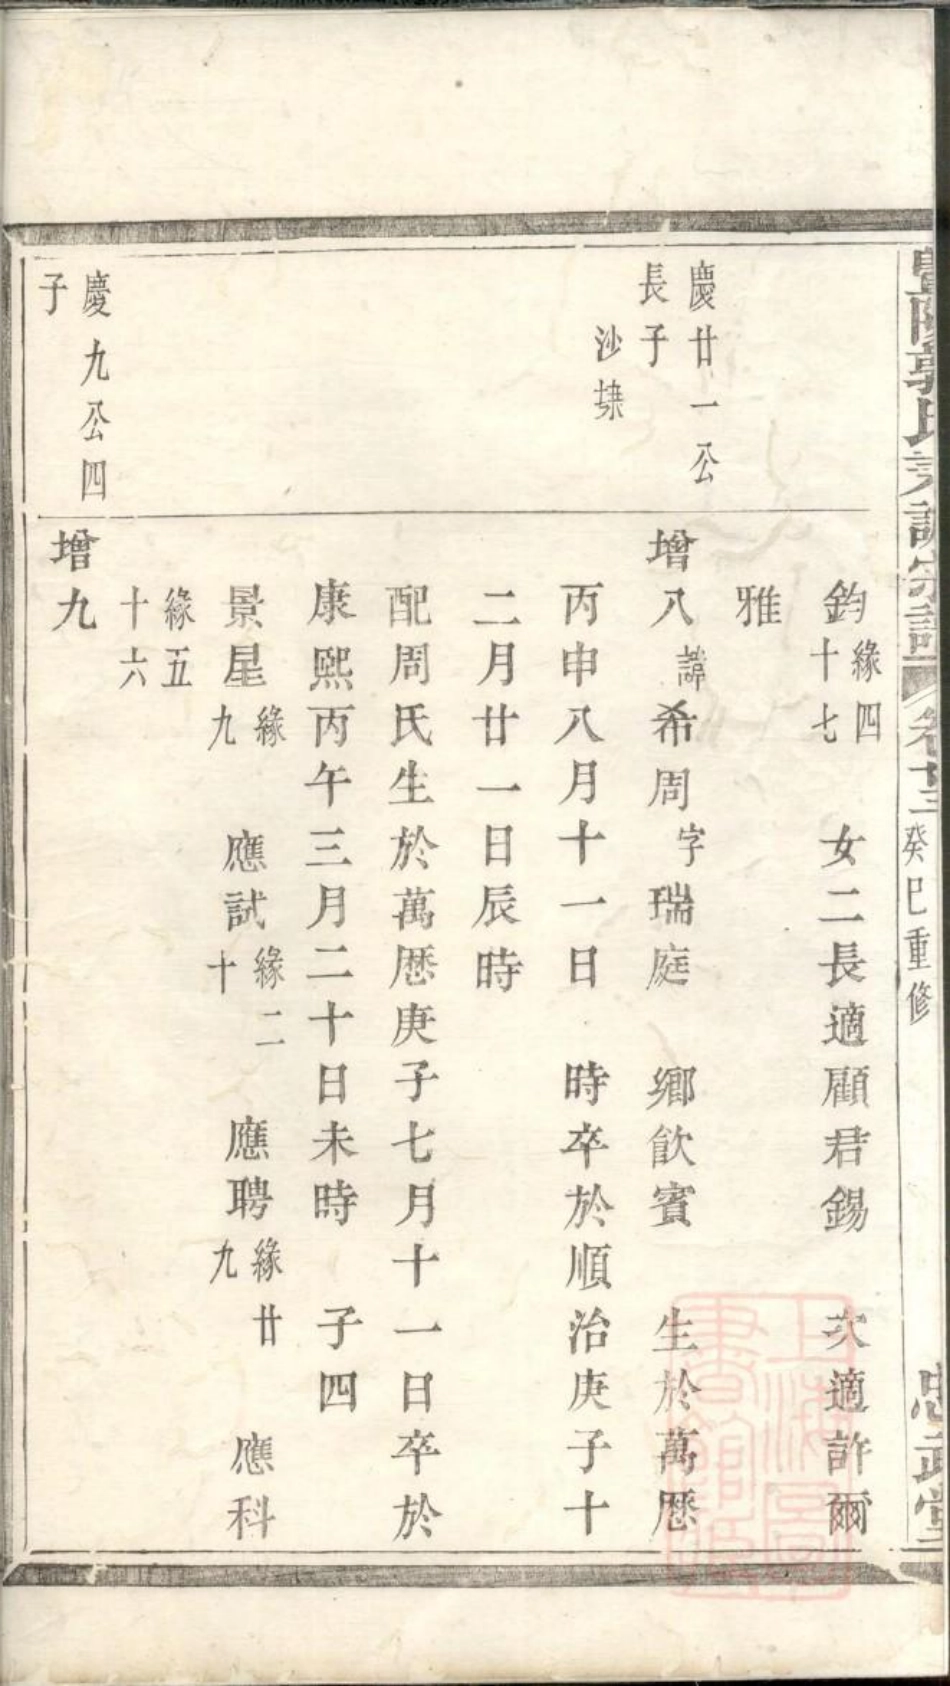 暨陽郭氏 譜宗譜
癸巳重修
忠武堂
鈞緣四十七 女二長適顧君錫 次適許爾
雅
慶廿一公
長子
沙埭
增八諱希周字瑞庭 鄉飲賓 生於萬歷
丙申八月十一日 時卒於順治庚子十
二月廿一日辰時
配周氏生於萬歷庚子七月十一日卒於
康熙丙午三月二十日未時 子四
景星緣九 應試緣二十 應聘緣廿九 應科
緣五十六
慶九公四
子
增九
上海圖書館藏